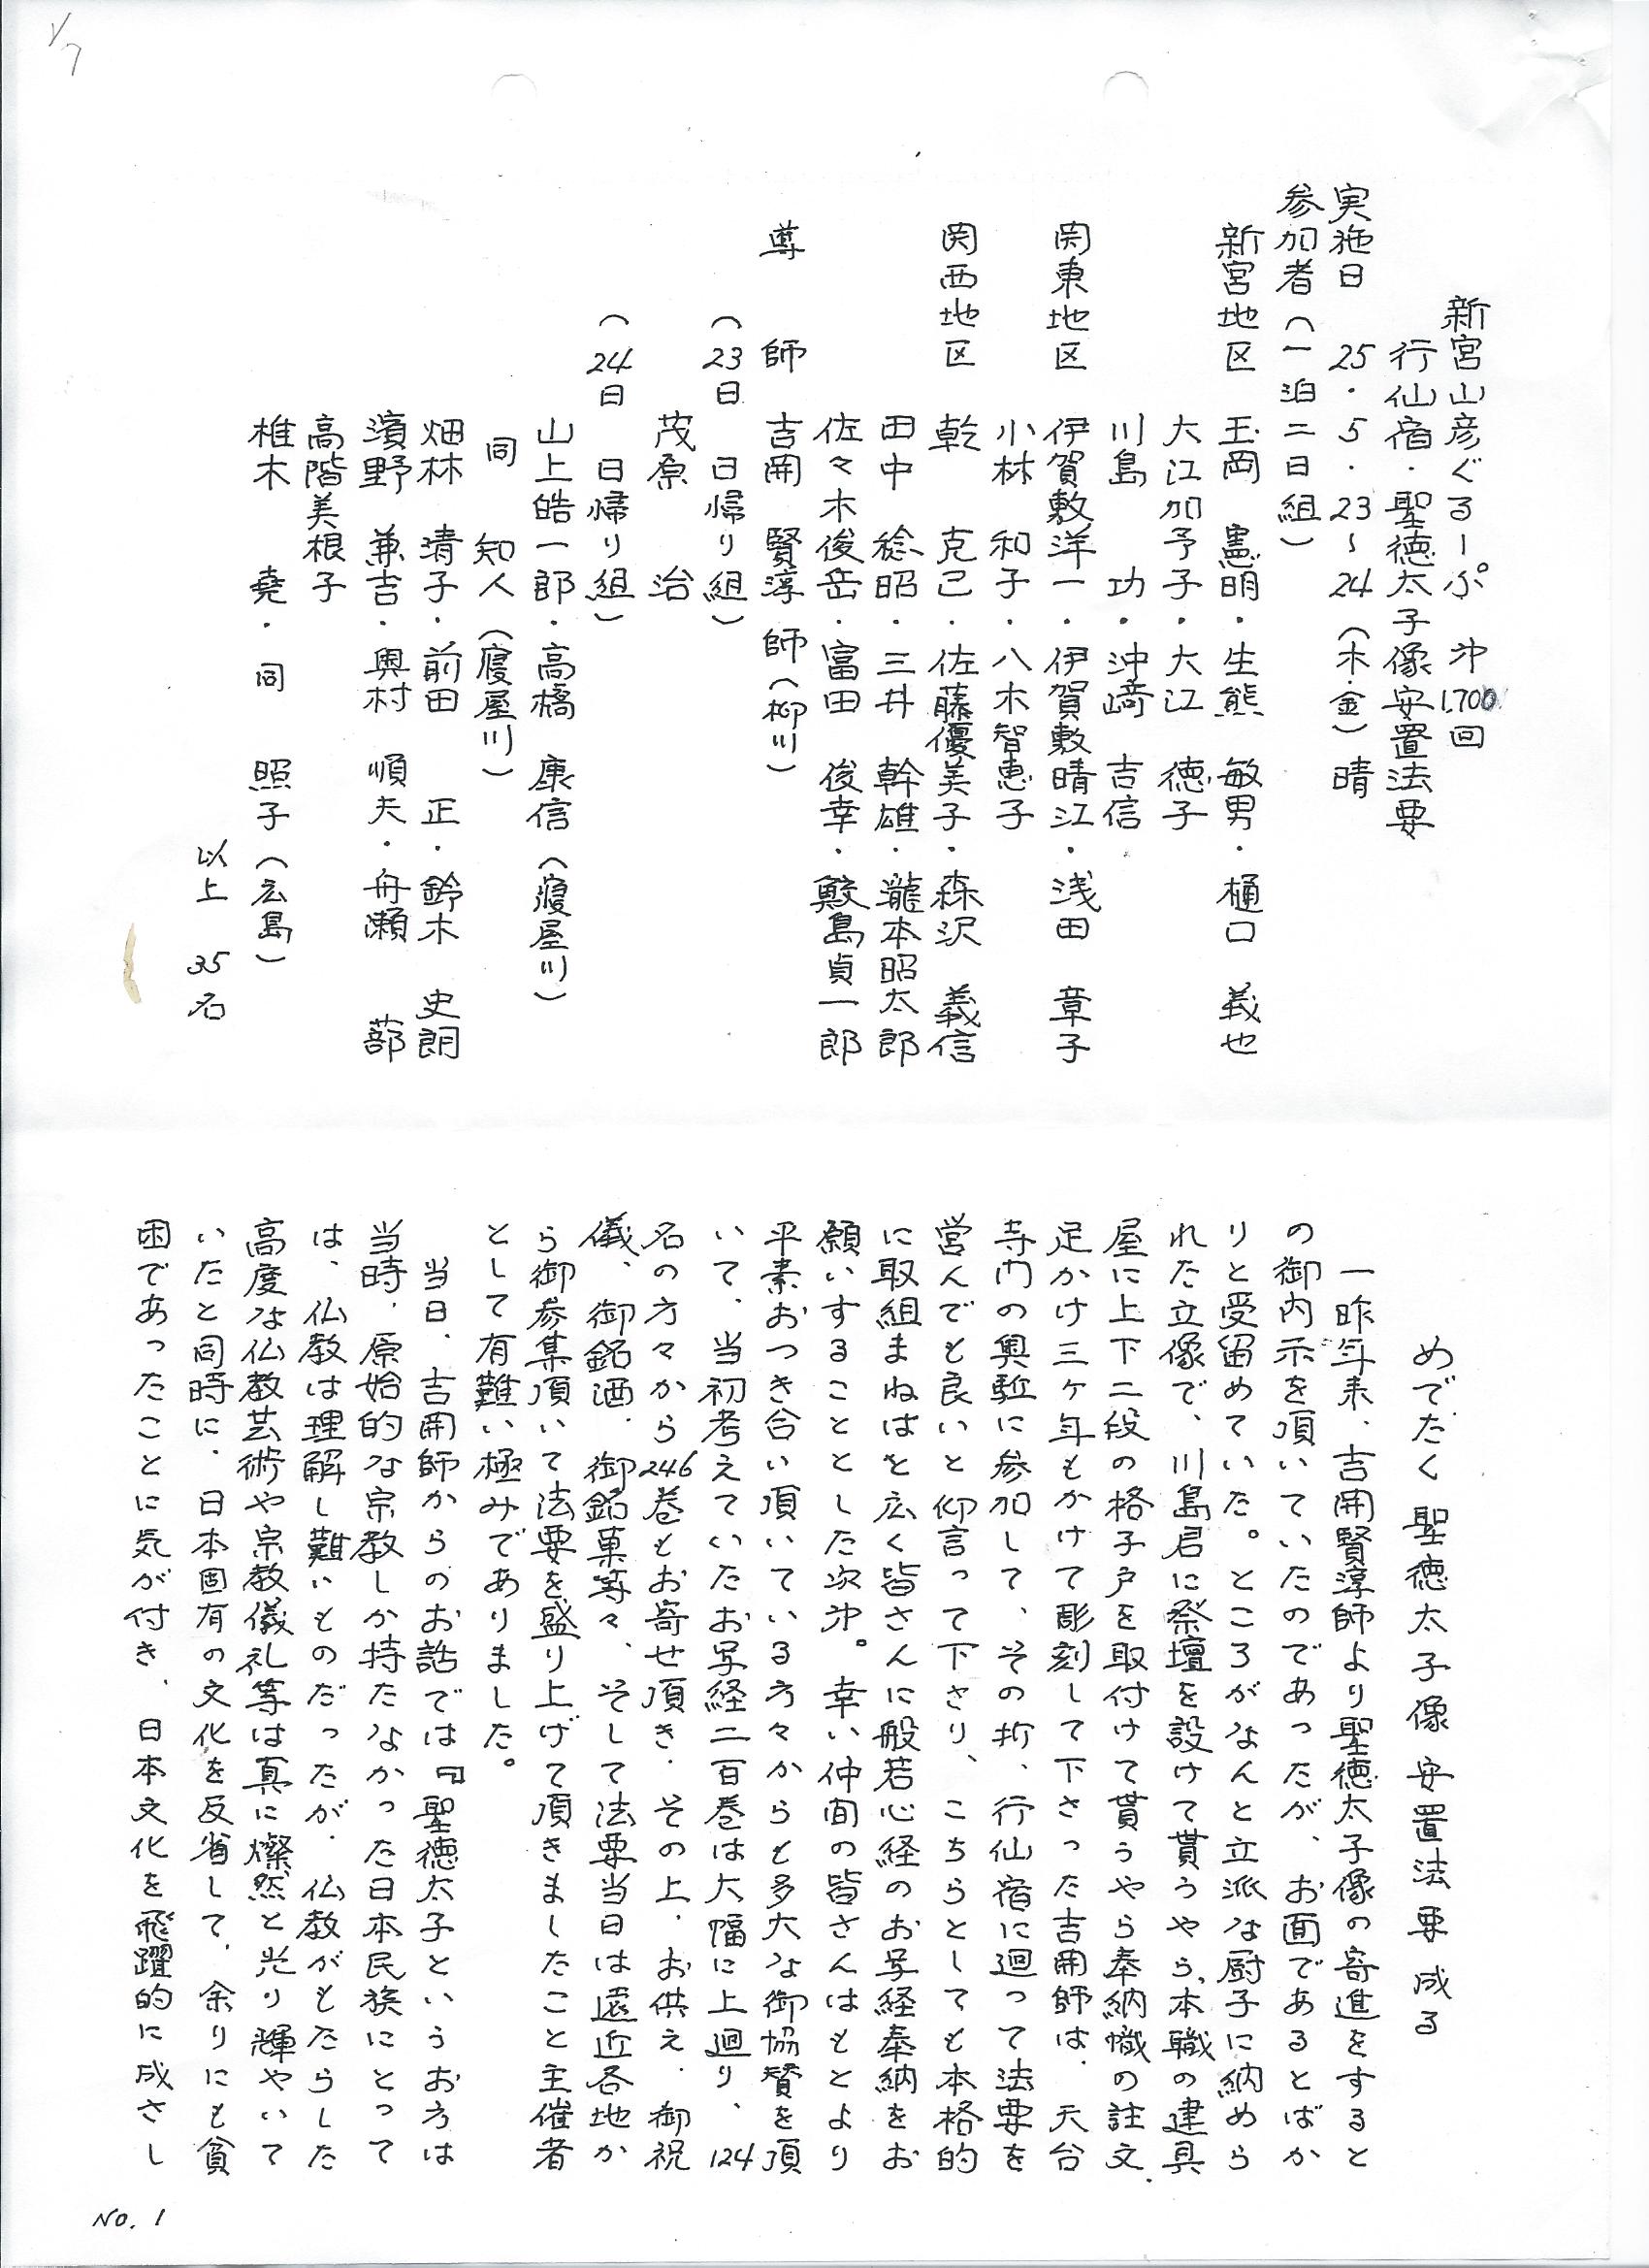 1/7
新宮山彦ぐるーぷ 沖1,700回
行仙宿・聖徳太子像安置法要
実施日 25・5・23~24(木・金)晴
参加者(一泊二日組)
新宮地区 玉岡 憲明・生熊 敏男・樋口 義也
大江加予子・大江 徳子
川島 功・沖﨑 吉信
関東地区 伊賀敷洋一・伊賀敷晴江・浅田 章子
小林 和子・八木智恵子
関西地区 乾 克己・佐藤優美子・森沢 義信
田中 稔昭・三井 幹雄・瀧本昭太郎
佐々木俊岳・富田 俊幸・鮫島貞一郎
導 師 吉開 賢淳 師(柳川)
(23日 日帰り組)
茂原 治
(24日 日帰り組)
山上皓一郎・高橋 康信(寝屋川)
同 知人(寝屋川)
畑林 清子・前田 正・鈴木 史朗
濱野 兼吉・奥村 順夫・舟瀬 蔀
高階美根子
椎木 堯・同 照子(広島)
以上 35名
めでたく聖徳太子像安置法要成る
一昨年末、吉開賢淳師より聖徳太子像の寄進をすると
の御内示を頂いていたのであったが、お面であるとばか
りと受留めていた。ところがなんと立派な厨子に納めら
れた立像で、川島君に祭壇を設けて貰うやら、本職の建具
屋に上下二段の格子戸を取付けて貰うやら奉納幟の註文、
足かけ三ヶ年もかけて彫刻して下さった吉開師は、天台
寺門の奥駈に参加して、その折、行仙宿に廻って法要を
営んでも良いと仰言って下さり、こちらとしても本格的
に取組まねはと広く皆さんに般若心経のお写経奉納をお
願いすることとした次沖。幸い仲間の皆さんはもとより
平素おつき合い頂いている方々からも多大な御協賛を頂
いて、当初考えていたお写経二百巻は大幅に上廻り、124
名の方々から246巻もお寄せ頂き、その上、お供え、御祝
儀、御銘酒、御銘菓等々、そして法要当日は遠近各地か
ら御参集頂いて法要を盛り上げて頂きましたこと主催者
として有難い極みでありました。
当日、吉開師からのお話では『聖徳太子というお方は
当時、原始的な宗教しか持たなかった日本民族にとって
は、仏教は理解し難いものだったが、仏教がもたらした
高度な仏教芸術や宗教儀礼等は真に燦然と光り輝やいて
いたと同時に、日本固有の文化を反省して、余りにも貧
困であったことに気が付き、日本文化を飛躍的に成さし
NO. 1